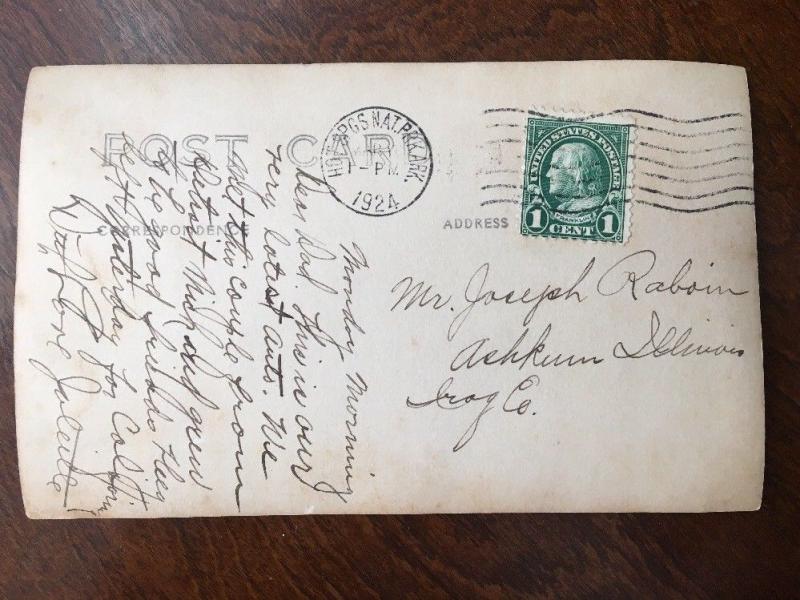 POST CARD
CORRESPONDENCE
ADDRESS
HOT SPGS. NAT. PRK. ARK.
1-PM
1924
UNITED STATES POSTAGE
FRANKLIN
1 CENT 1
Mr. Joseph Raboin
Ashkum Illinois
Iroq Co.
Monday Morning
Dear Dad. This is our
very latest auto. We
met this couple from
Detroit Mich and grew
to be good friends they
left yesterday for California
Love Juliette